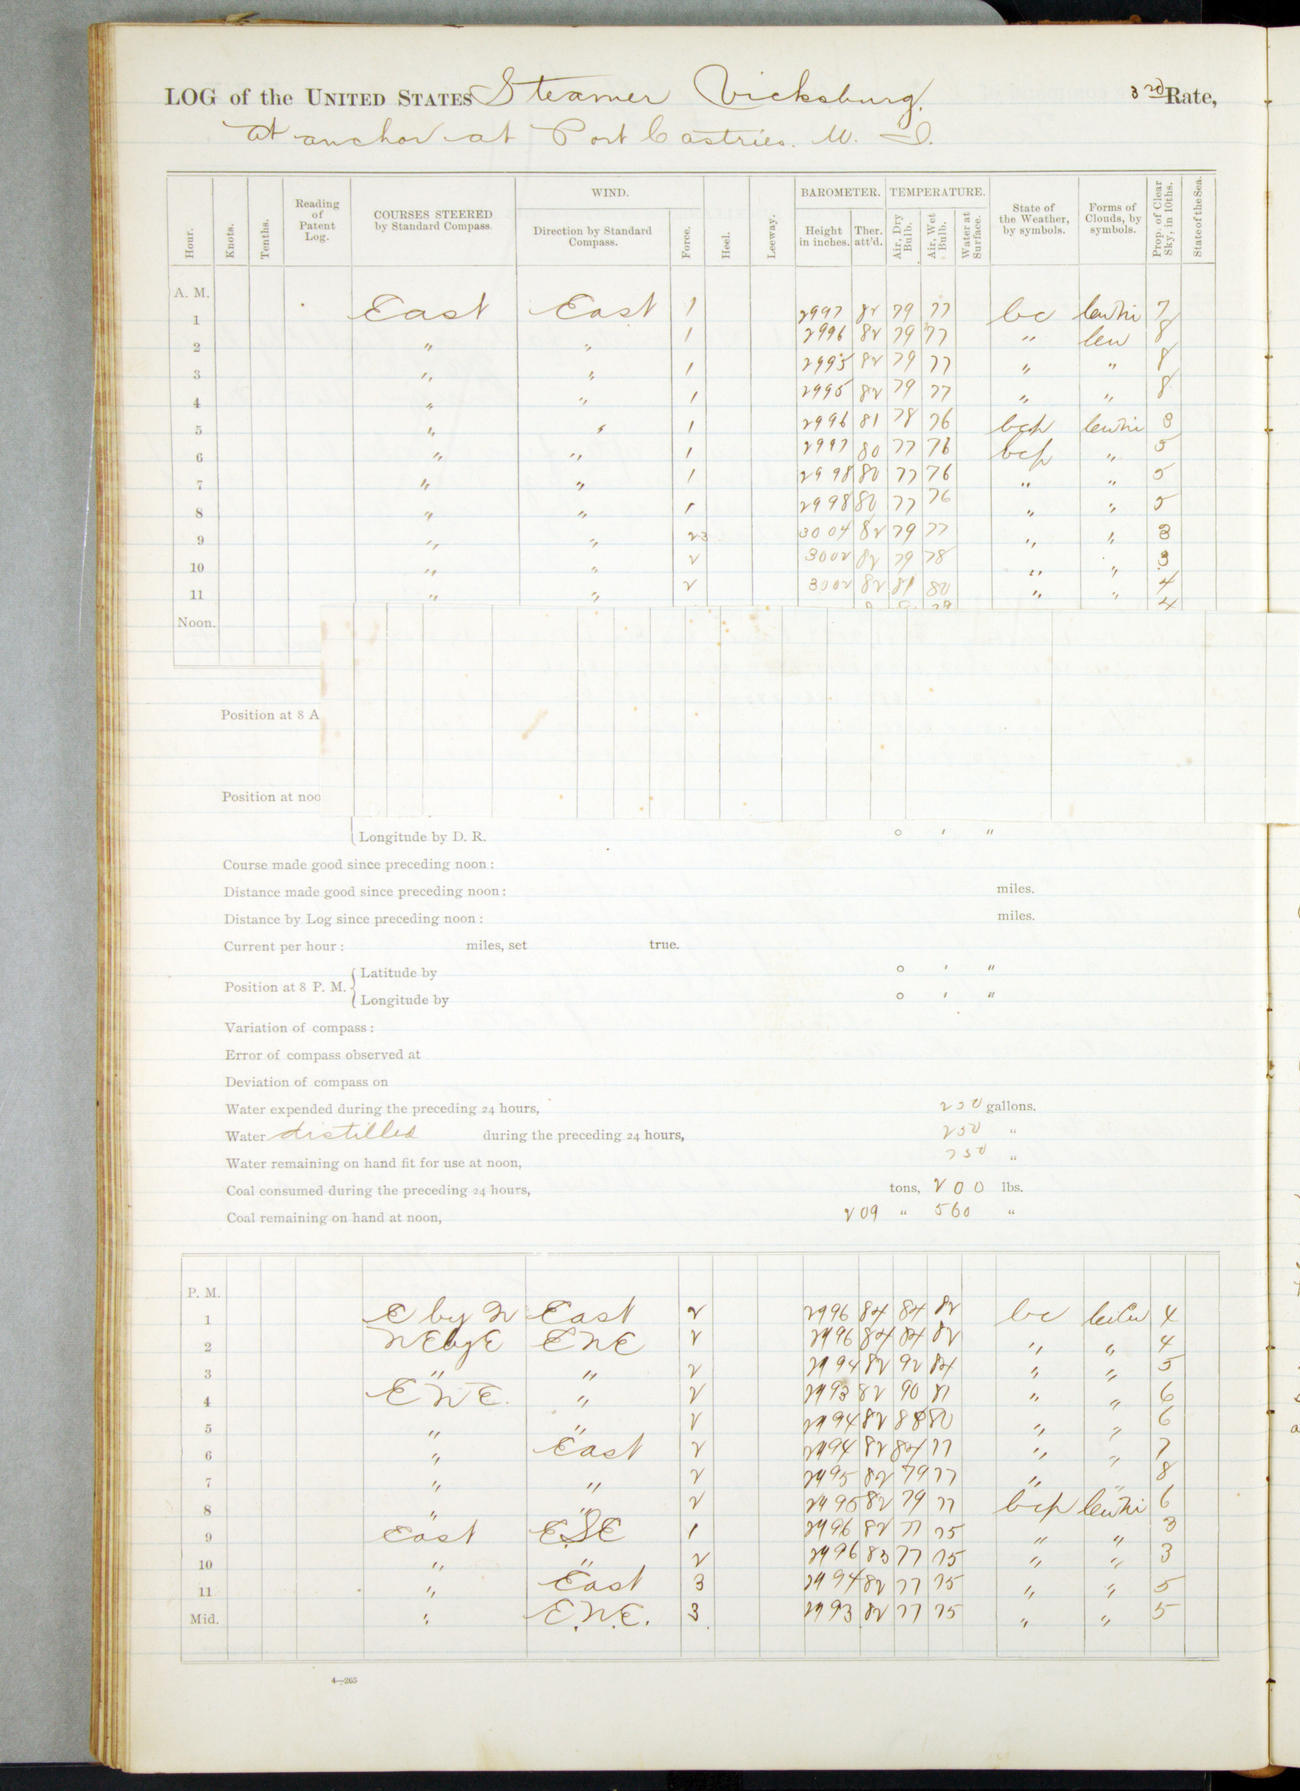 LOG of the UNITED STATES Steamer Vicksburg. 3rd Rate,
At anchor at Port Castries. W. I.
Hour. Knots. Tenths. Reading of Patent Log. COURSES STEERED by Standard Compass. WIND. Direction by Standard Compass. Force. Heel. Leeway. BAROMETER. Height in inches. Ther. att'd. TEMPERATURE. Air, Dry Bulb. Air, Wet Bulb. Water at Surface. State of the Weather, by symbols. Forms of Clouds, by symbols. Prop. of Clear Sky, in 10ths. State of the Sea.
A. M.
1 East East 1 2997 82 79 77 bc 7
2 " " 1 2996 82 79 77 " cu 8
3 " " 1 2995 82 79 77 " " 8
4 " " 1 2995 82 79 77 " " 8
5 " " 1 2996 81 78 76 bcp 3
6 " " 1 2997 80 77 76 bcp " 5
7 " " 1 2998 80 77 76 " " 5
8 " " 1 2998 80 77 76 " " 5
9 " " 23 3004 82 79 77 " " 3
10 " " 2 3002 82 79 78 " " 3
11 " " 2 3002 82 81 80 " " 4
Noon. 4
Position at 8 A
Position at noo
Longitude by D. R. ° ' "
Course made good since preceding noon:
Distance made good since preceding noon: miles.
Distance by Log since preceding noon: miles.
Current per hour: miles, set true.
Position at 8 P. M. Latitude by ° ' "
Longitude by ° ' "
Variation of compass:
Error of compass observed at
Deviation of compass on
Water expended during the preceding 24 hours, 250 gallons.
Water distilled during the preceding 24 hours, 250 "
Water remaining on hand fit for use at noon, 750 "
Coal consumed during the preceding 24 hours, tons, 200 lbs.
Coal remaining on hand at noon, 209 " 560 "
P. M.
1 E by N East 2 2996 84 84 82 bc 4
2 NEbyE ENE 2 2996 84 84 82 " " 4
3 " " 2 2994 82 92 84 " " 5
4 ENE. " 2 2993 82 90 81 " " 6
5 " " 2 2994 82 88 80 " " 6
6 " East 2 2994 82 84 77 " " 7
7 " " 2 2995 82 79 77 " " 8
8 " " 2 2995 82 79 77 bcp 6
9 East ESE 1 2996 82 77 75 " " 3
10 " " 2 2996 83 77 75 " " 3
11 " East 3 2994 82 77 75 " " 5
Mid. " E.N.E. 3 2993 82 77 75 " " 5
4—265